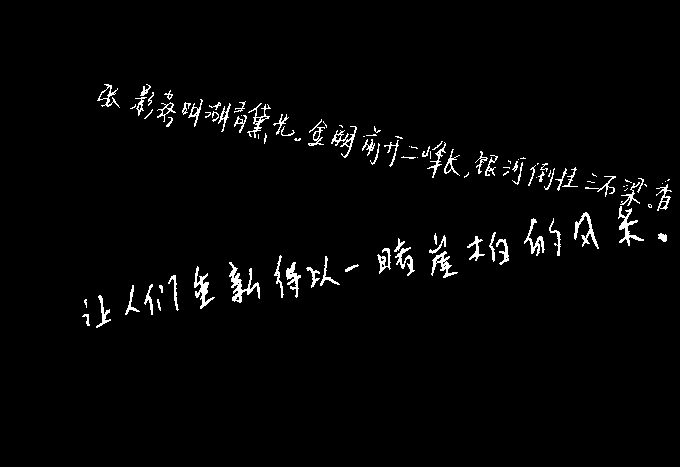 张影落明湖青黛光。金阙前开二峰长,银河倒挂三石梁。香
让人们重新得以一睹崖柏的风采。